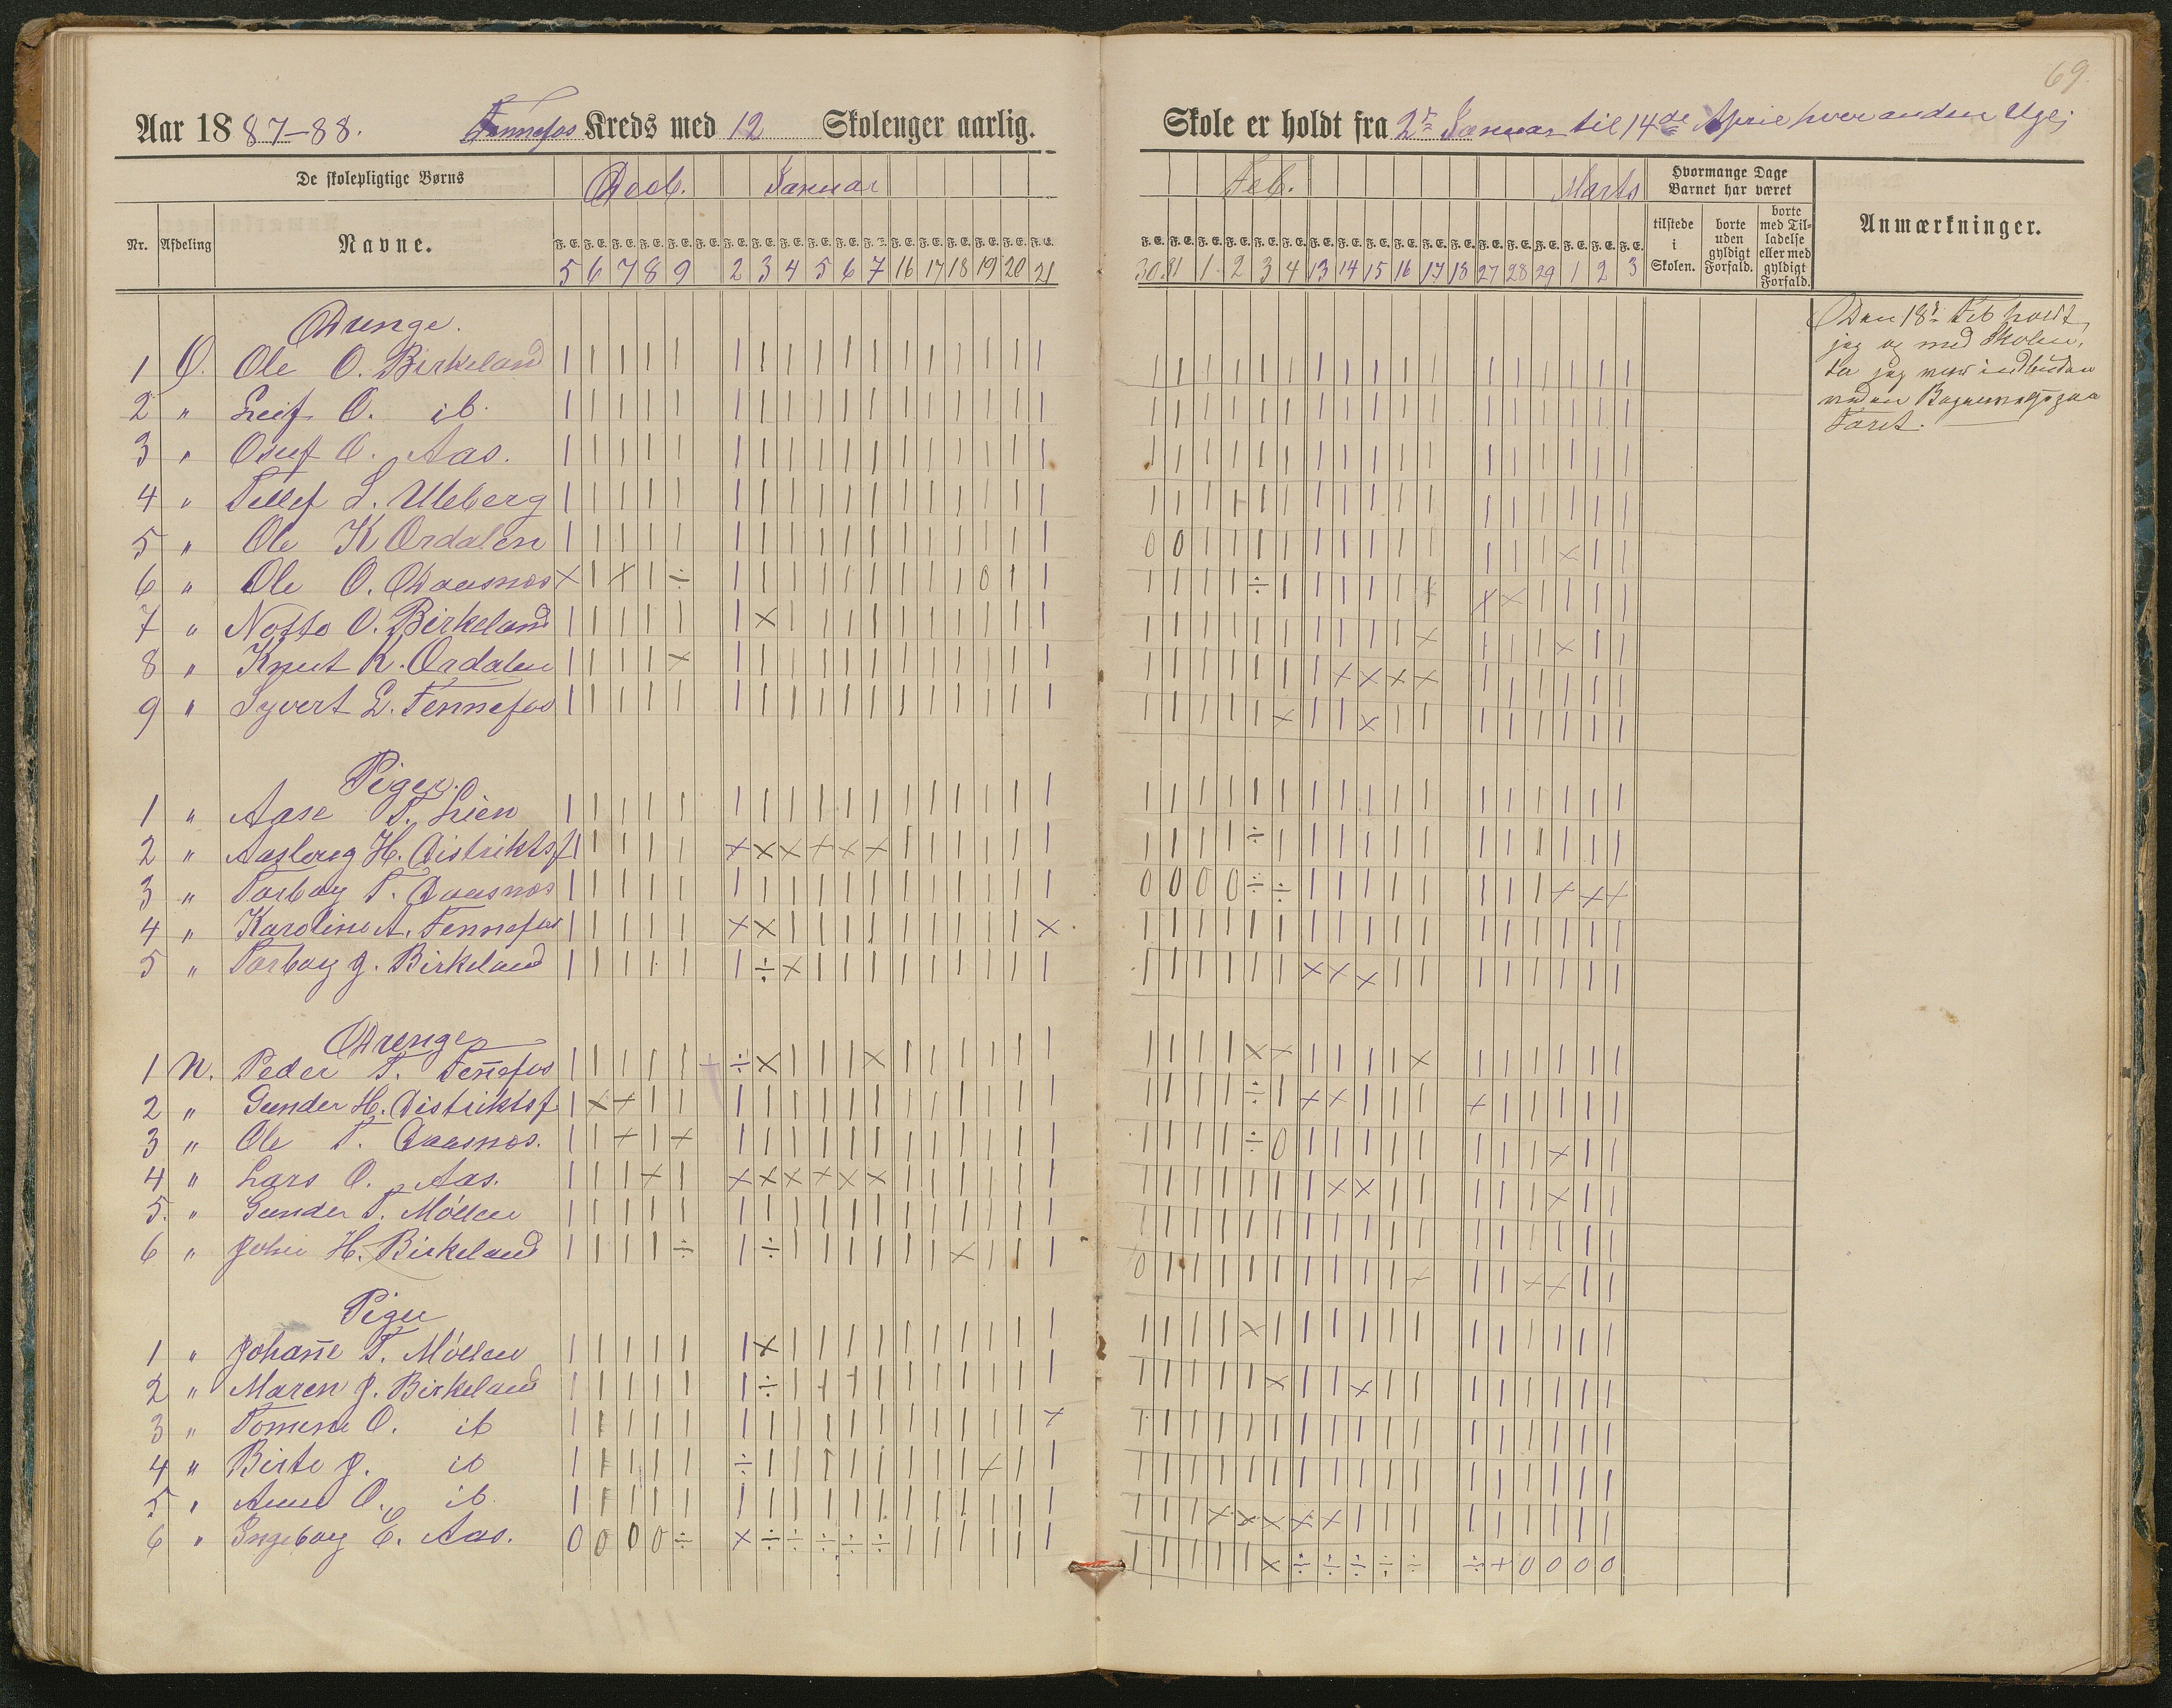 69.
Aar 1887-88. Fennefos Kreds med 12 Skoleuger aarlig.
Skole er holdt fra 2den Januar til 14de April hver anden Uge;
De skolepligtige Børns
Decb. Januar
Feb. Marts
Hvormange Dage Barnet har været
Nr. Afdeling Navne.
F. E. F. E. F. E. F. E. F. E. F. E. F. E. F. E. F. E. F. E. F. E. F. E. F. E. F. E. F. E. F. E. F. E. F. E.
F. E. F. E. F. E. F. E. F. E. F. E. F. E. F. E. F. E. F. E. F. E. F. E. F. E. F. E. F. E. F. E. F. E. F. E.
tilstede i Skolen.
borte uden gyldigt Forfald.
borte med Tilladelse eller med gyldigt Forfald.
Anmærkninger.
5 6 7 8 9 2 3 4 5 6 7 16 17 18 19 20 21
30 31 1 2 3 4 13 14 15 16 17 18 27 28 29 1 2 3
Drenge.
1 O. Ole O. Birkeland | | | | | | | | | | | | | | | | | | | | | | | | | | | | | | | | | |
2 " Leif O. ib. | | | | | | | | | | | | | | | | | | | | | | | | | | | | | | | | | |
3 " Osuf O. Aas. | | | | | | | | | | | | | | | | | | | | | | | | | | | | | | | | | |
4 " Tellef S. Uleberg | | | | | | | | | | | | | | | | | | | | | | | | | | | | | | | | | |
5 " Ole K Ordalen | | | | | | | | | | | | | | | | | 0 0 | | | | | | | | | | | | × | |
6 " Ole O. Daasnes × | × | ÷ | | | | | | | | | 0 | | | | | | ÷ | | | | | | × × | | | |
7 " Notto O. Birkeland | | | | | | × | | | | | | | | | | | | | | | | | | | | × | | | × | |
8 " Knut K. Ordalen | | | | × | | | | | | | | | | | | | | | | | | | × × × × | | | | | |
9 " Syvert L. Fennefos | | | | | | | | | | | | | | | | | | | | | | × | | × | | | | | | | |
Piger.
1 " Aase T. Lien | | | | | | | | | | | | | | | | | | | | | | | | | | | | | | | | | |
2 " Aasloug H. Distriktsf | | | | | × × × × × × | | | | | | | | | | ÷ | | | | | | | | | | | |
3 " Torbor T. Daasnes | | | | | | | | | | | | | | | | | 0 0 0 0 ÷ ÷ | | | | | | | | × × ×
4 " Karoline A. Fennefos | | | | | × × | | | | | | | | | × | | | | | | | | | | | | | | | | |
5 " Torbor J. Birkeland | | | | | | ÷ × | | | | | | | | | | | | | | | × × × | | | | | | | |
Drenge
1 N. Peder T. Fen̄efos | | | | | + ÷ × | | | × | | | | | | | | | | × × | | | | × | | | | | |
2 " Gunder H. Distriktsf | × × | | | | | | | | | | | | | | | | | | ÷ | × × | | | × | | | | |
3 " Ole T. Daasnes. | | × | × | | | | | | | | | | | | | | | | ÷ 0 | | | | | | | | × | |
4 " Lars O. Aas. | | | × | × × × × × × | | | | | | | | | | | | | × × | | | | | × | |
5. " Gunder T. Möllen | | | | | | | | | | | | | | | | | | | | | | | | | | | | | | | | | |
6 " John H. Birkeland | | | | ÷ | ÷ | | | | | | × | | | 0 | | | | | | | | | × | | × × | |
Piger
1 " Johan̄e T. Möllen | | | | | | × | | | | | | | | | | | | | | × | | | | | | | | | | | |
2 " Maren J. Birkeland | | | | | | ÷ | | | | | | | | | | | | | | | × | | × | | | | | | | |
3 " Tomine O. ib | | | | | | | | | | | | | | | | × | | | | | | | | | | | | | | | | |
4 " Birte J. ib | | | | | ÷ | | | | | | | | × | | | | | | | | | | | | | | | | | | |
5 " Anne O. ib. | | | | | | | | | | | | | | | | | | | | × × × × × | | | | | | | | |
6 " Ingeborg E. Aas. 0 0 0 0 ÷ × ÷ ÷ ÷ ÷ ÷ | | | | | | | | | | | × ÷ ÷ ÷ ÷ ÷ ÷ + 0 0 0 0
Den 18de Feb holdt
jeg og med Skolen,